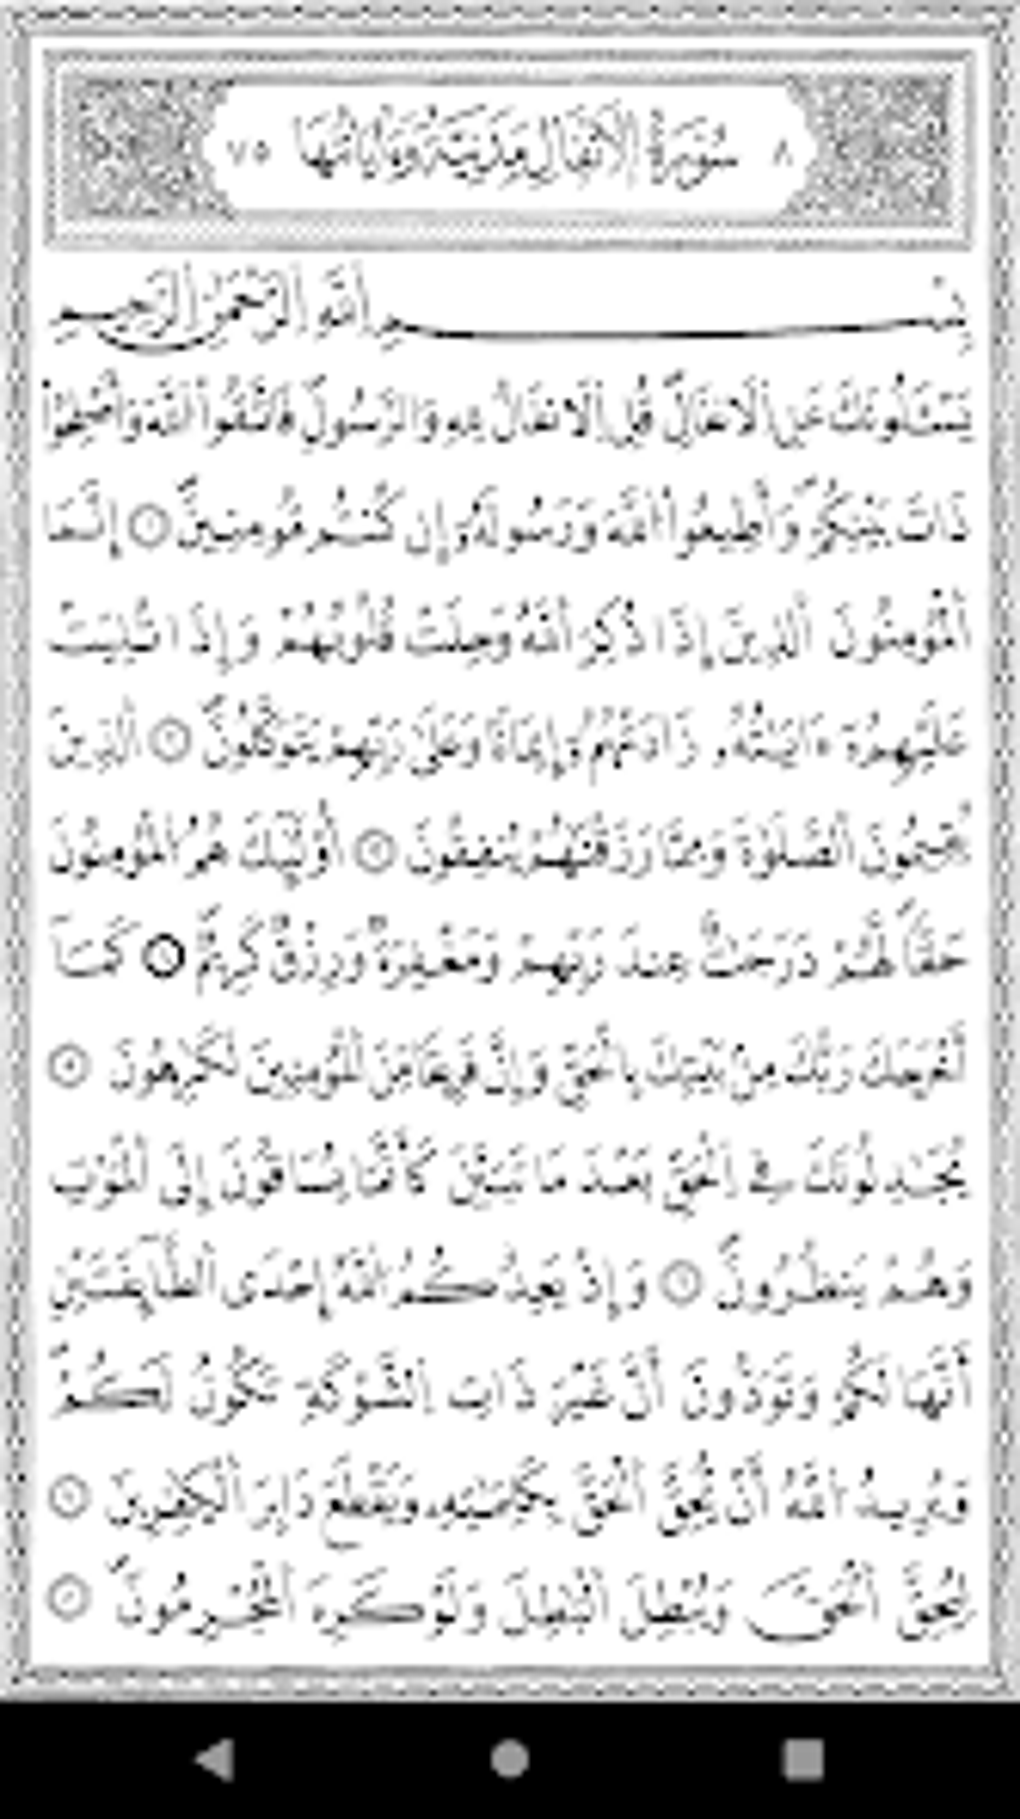 ٨ سُورَةُ الْأَنفَالِ مَدَنِيَّةٌ وَءَايَاتُهَا ٧٥
بِسْمِ اللَّهِ الرَّحْمَٰنِ الرَّحِيمِ
يَسْـَٔلُونَكَ عَنِ الْأَنفَالِ قُلِ الْأَنفَالُ لِلهِ وَالرَّسُولِ فَاتَّقُوا اللَّهَ وَأَصْلِحُوا
ذَاتَ بَيْنِكُمْ وَأَطِيعُوا اللَّهَ وَرَسُولَهُ إِن كُنتُم مُّومِنِينَ ١ إِنَّمَا
الْمُومِنُونَ الَّذِينَ إِذَا ذُكِرَ اللَّهُ وَجِلَتْ قُلُوبُهُمْ وَإِذَا تُلِيَتْ
عَلَيْهِمُ ءَايَٰتُهُ زَادَتْهُمُ إِيمَانًا وَعَلَىٰ رَبِّهِمْ يَتَوَكَّلُونَ ٢ الَّذِينَ
يُقِيمُونَ الصَّلَوٰةَ وَمِمَّا رَزَقْنَٰهُمْ يُنفِقُونَ ٣ أُوْلَٰئِكَ هُمُ الْمُومِنُونَ
حَقًّا لَّهُمْ دَرَجَٰتٌ عِندَ رَبِّهِمْ وَمَغْفِرَةٌ وَرِزْقٌ كَرِيمٌ ٤ كَمَا
أَخْرَجَكَ رَبُّكَ مِنۢ بَيْتِكَ بِالْحَقِّ وَإِنَّ فَرِيقًا مِّنَ الْمُومِنِينَ لَكَٰرِهُونَ ٥
يُجَٰدِلُونَكَ فِي الْحَقِّ بَعْدَ مَا تَبَيَّنَ كَأَنَّمَا يُسَاقُونَ إِلَى الْمَوْتِ
وَهُمْ يَنظُرُونَ ٦ وَإِذْ يَعِدُكُمُ اللَّهُ إِحْدَى الطَّائِفَتَيْنِ
أَنَّهَا لَكُمْ وَتَوَدُّونَ أَنَّ غَيْرَ ذَاتِ الشَّوْكَةِ تَكُونُ لَكُمْ
وَيُرِيدُ اللَّهُ أَنْ يُّحِقَّ الْحَقَّ بِكَلِمَٰتِهِ وَيَقْطَعَ دَابِرَ الْكَٰفِرِينَ ٧
لِيُحِقَّ الْحَقَّ وَيُبْطِلَ الْبَٰطِلَ وَلَوْ كَرِهَ الْمُجْرِمُونَ ٨